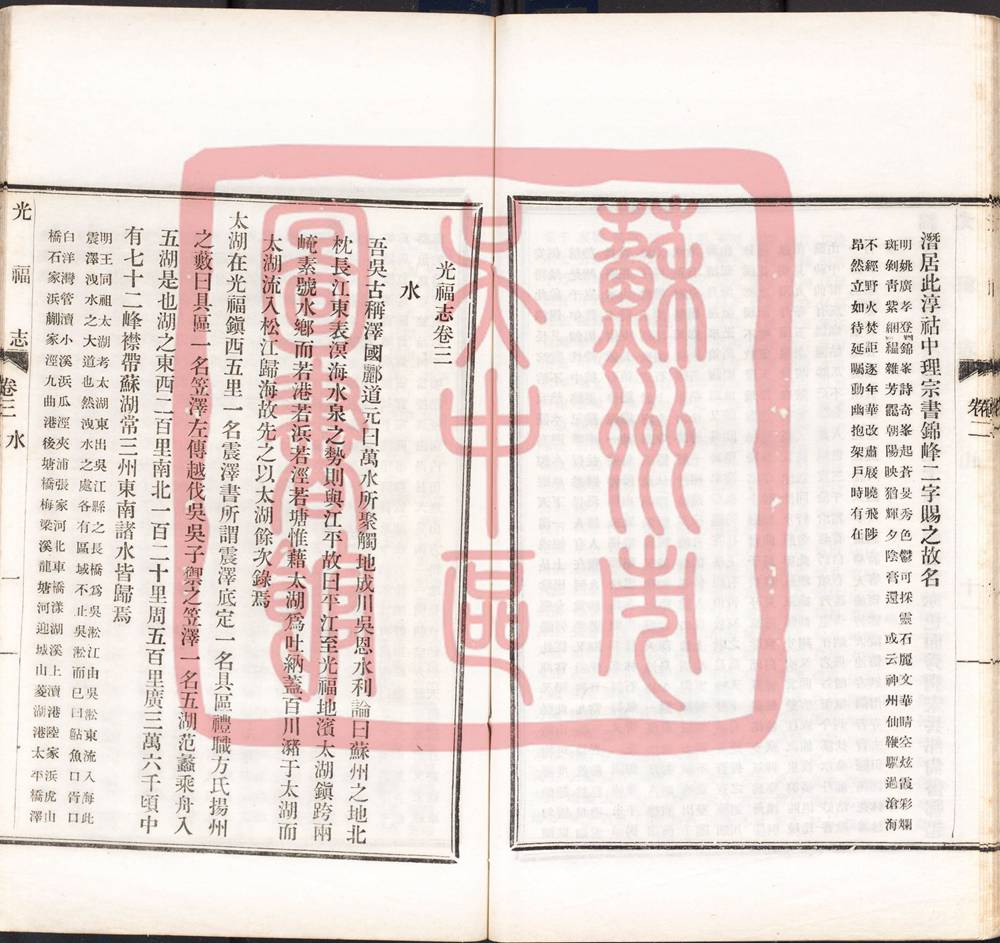 潛居此淳祜中理宗書錦峰二字賜之故名
明姚廣孝登錦峯詩奇峯起蒼旻秀色鬱可採靈石麗文華晴空炫霞彩斕
斑剝青紫縕雜芳靄朝陽映猶輝夕陰膏還或云神州仙鞭驅過滄海
不經野火焚詎逐年華改肅屐曉飛陟
昂然立如待延矚動幽抱架戶時有在
卷二
光福志卷三
水
吾吳古稱澤國酈道元曰萬水所聚觸地成川吳恩水利論曰蘇州之地北
枕長江東表溟海水泉之勢則與江平故曰平江至光福地濱太湖鎮跨兩
崦素號水鄉而若港若浜若涇若塘惟藉太湖爲吐納蓋百川瀦于太湖而
太湖流入松江歸海故先之以太湖餘次錄焉
太湖在光福鎮西五里一名震澤書所謂震澤底定一名具區禮職方氏揚州
之藪曰具區一名笠澤左傳越伐吳吳子禦之笠澤一名五湖范蠡乘舟入
五湖是也湖之東西二百里南北一百二十里周五百里廣三萬六千頃中
有七十二峰襟帶蘇湖常三州東南諸水皆歸焉
明王同祖太湖考太湖東出吳江縣之長橋爲吳淞江由吳淞東流入海此
震澤洩水之大道也然洩水之處各有區域不止吳淞而已曰鮎魚口胥口
白洋灣管瀆小溪浜瓜涇夾浦張家河北車橋漾湖溪上瀆港陸家浜虎山
橋石家浜蒯家涇九曲港後塘橋梅梁溪龍塘河迎城山菱湖港太平橋澤
光福志
卷三 水
一
蘇州市
吳中區
圖書館